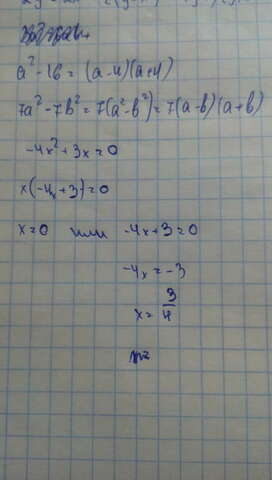 a² - 16 = (a-4)(a+4)
7a² - 7b² = 7(a² - b²) = 7(a-b)(a+b)
-4x² + 3x = 0
x(-4x + 3) = 0
x = 0 или -4x + 3 = 0
-4x = -3
x = 3/4